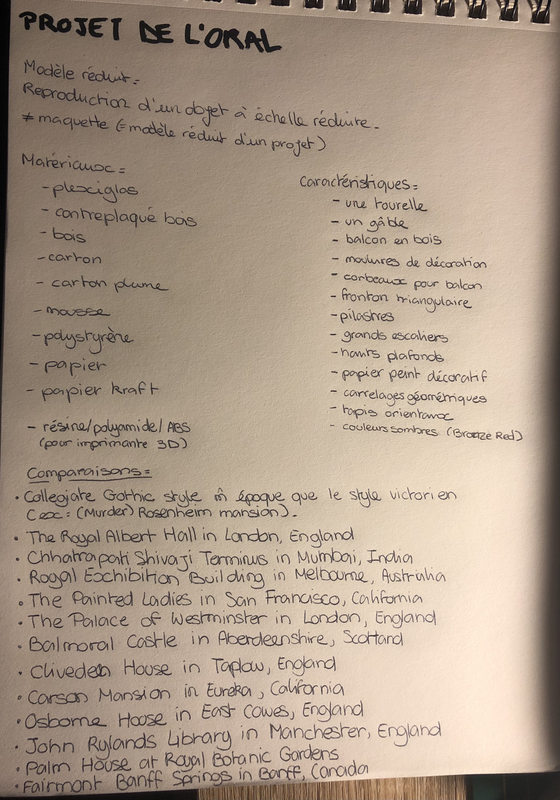 PROJET DE L'ORAL
Modèle réduit :
Reproduction d'un objet à échelle réduire.
≠ maquette (= modèle réduit d'un projet)
Matériaux :
- plexiglas
- contreplaqué bois
- bois
- carton
- carton plume
- mousse
- polystyrène
- papier
- papier kraft
- résine/polyamide/ABS
(pour imprimante 3D)
Caractéristiques :
- une tourelle
- un gâble
- balcon en bois
- moulures de décoration
- corbeaux pour balcon
- fronton triangulaire
- pilastres
- grands escaliers
- hauts plafonds
- papier peint décoratif
- carrelages géométriques
- tapis orientaux
- couleurs sombres (Bronze Red)
Comparaisons :
• Collegiate Gothic style m̂ époque que le style victorien
(ex : (Murder) Rosenheim mansion).
• The Royal Albert Hall in London, England
• Chhatrapati Shivaji Terminus in Mumbai, India
• Royal Exchibition Building in Melbourne, Australia
• The Painted Ladies in San Francisco, California
• The Palace of Westminster in London, England
• Balmoral Castle in Aberdeenshire, Scotland
• Cliveden House in Taplow, England
• Carson Mansion in Eureka, California
• Osborne House in East Cowes, England
• John Rylands Library in Manchester, England
• Palm House at Royal Botanic Gardens
• Fairmont Banff Springs in Banff, Canada